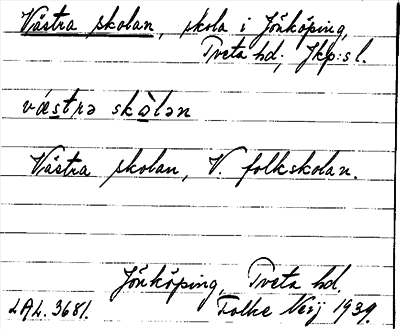 Västra skolan, skola i Jönköping,
Tveta hd; Jkp:s l.
væstrə skòlən
Västra skolan, V. folkskolan.
Jönköping, Tveta hd.
LAL. 3681. Folke Neij 1939.